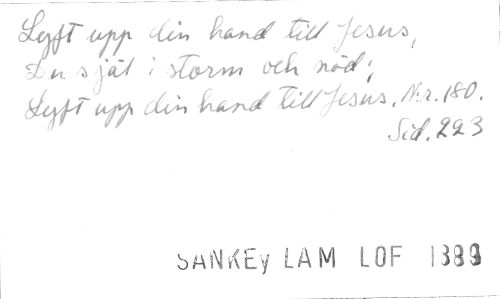 Lyft upp din hand till Jesus,
Du själ i storm och nöd;
Lyft upp din hand till Jesus. Nr. 180.
Sid. 223
SANKEY LAM LOF 1889